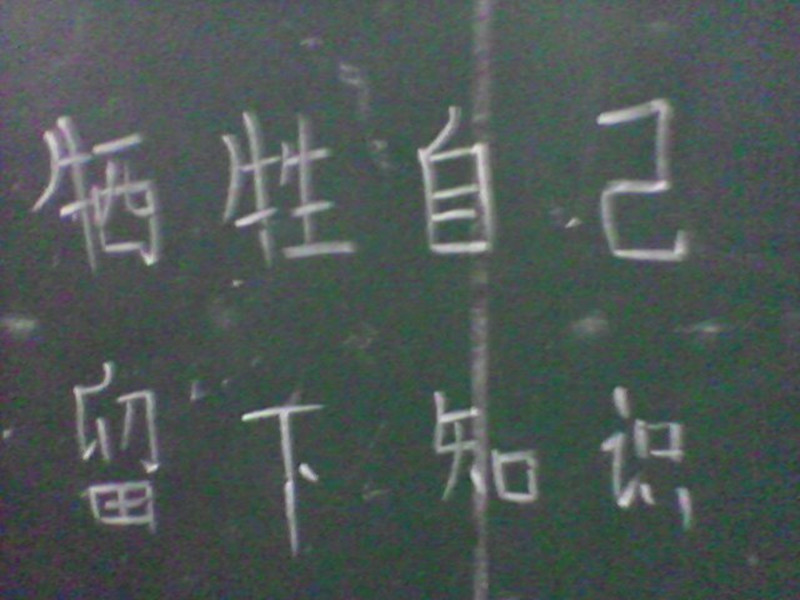 牺牲自己
留下知识